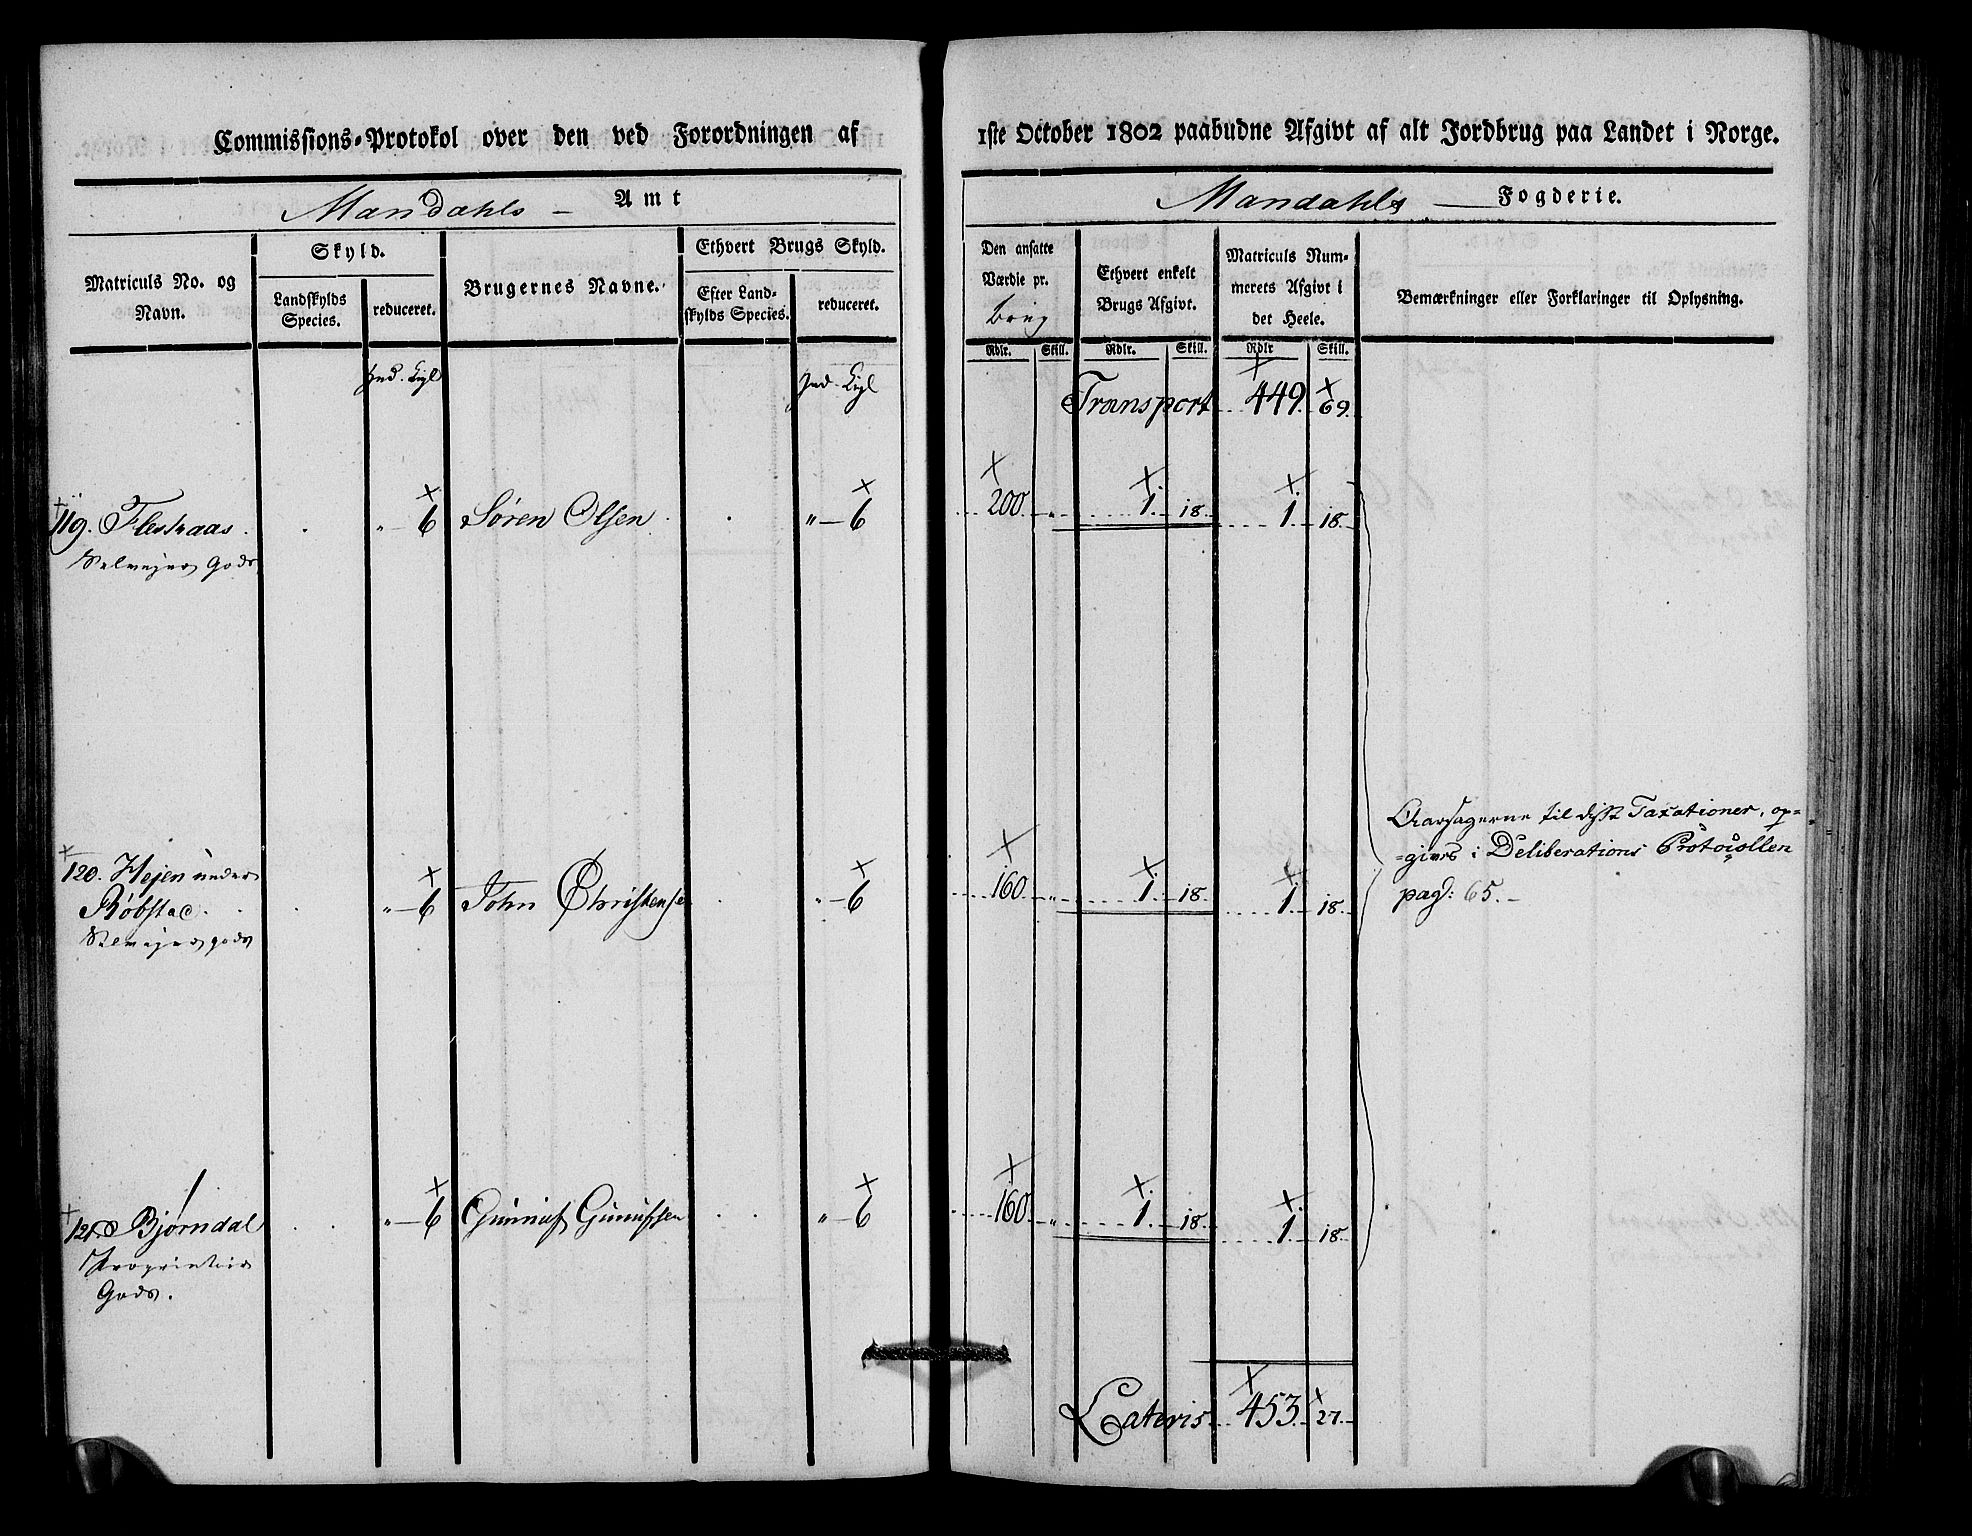 Commissions-Protokol over den ved Forordningen af
Mandahls – Amt
Matriculs No. og Navn.
Skyld.
Landskylds Species.
reduceret.
Brugernes Navne.
Ethvert Brugs Skyld.
Efter Landskylds Species.
reduceret.
Hud. Kigl
Hud. Kigl
119. Flestraas. " – 6 Søren Olsen . " – 6
Selvejer Gods
120. Hejen under
Røbstad. " – 6 John Christense " – 6
Selvejer gods
121. Bjørndal " – 6 Gunnuf Gunufsen " – 6
Proprietair
Gods.
1ste October 1802 paabudne Afgivt af alt Jordbrug paa Landet i Norge.
Mandahls – Fogderie.
Den ansatte Værdie pr.
brug
Ethvert enkelt Brugs Afgivt.
Matriculs Nummerets Afgivt i det Heele.
Bemærkninger eller Forklaringer til Oplysning.
Rdlr. Skill. Rdlr. Skill. Rdlr Skill.
Transport 449. 69.
200. " 1. 18. 1. 18.
Aarsagerne til disse Taxationer, op=
=gives i Deliberations Protocollen
pag: 65. –
160. " 1. 18. 1. 18.
160. " 1. 18. 1. 18.
Lateris 453. 27.